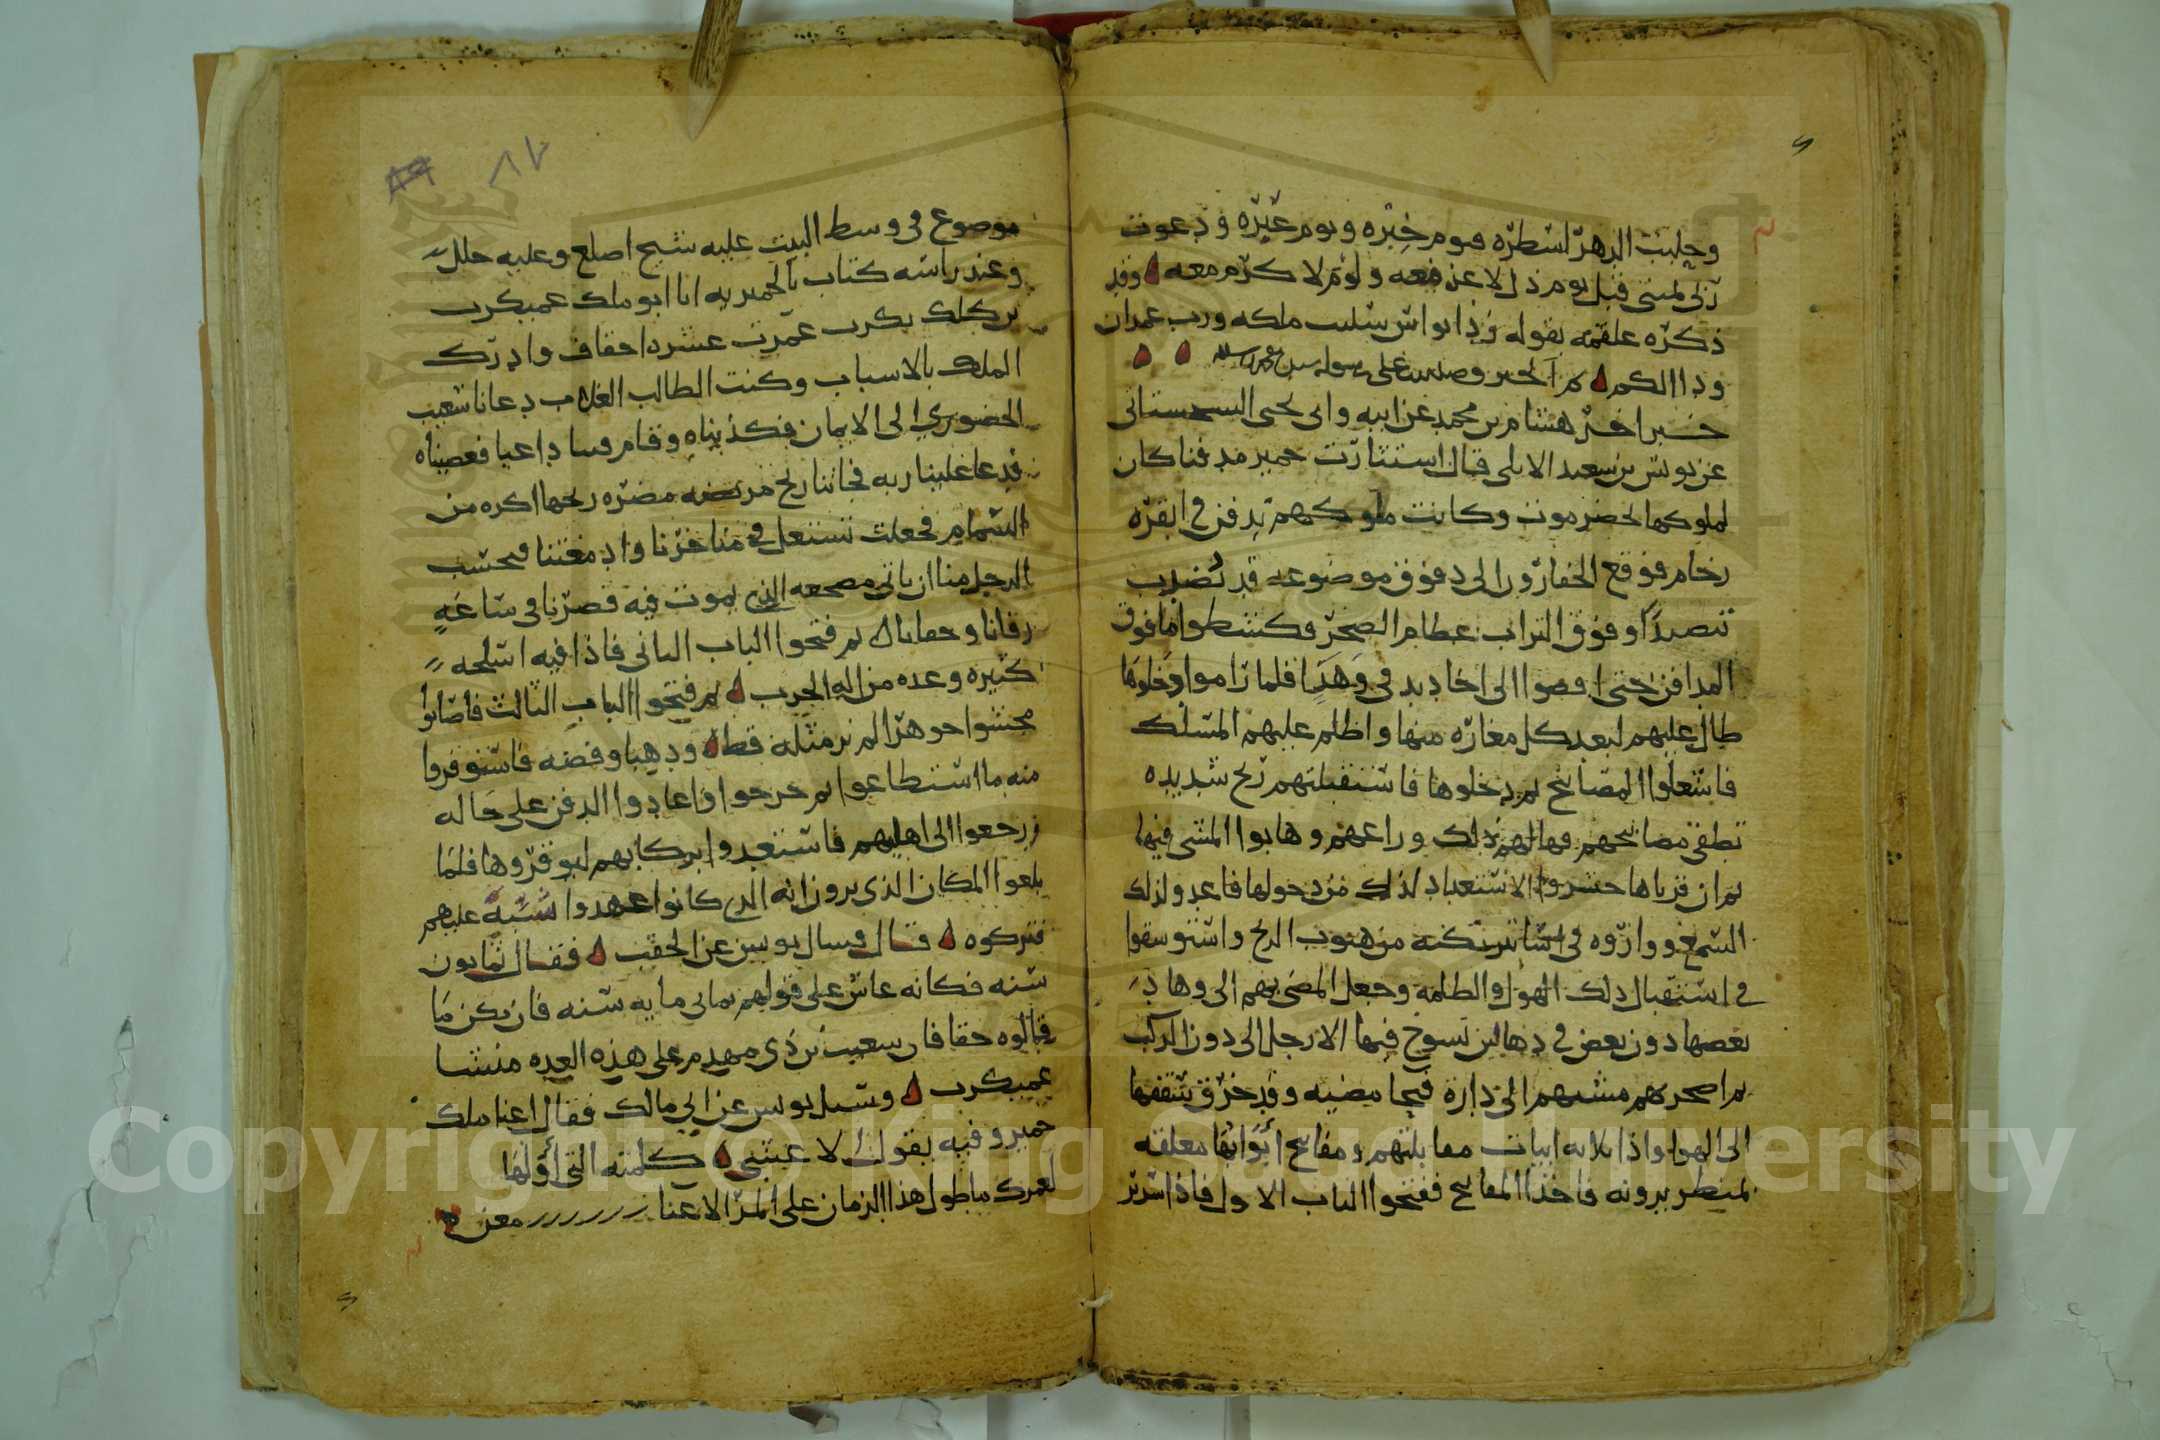 وحلبت الدهر اشطره فيوم خبره ويوم عبره ودعوت
رتى لميتى قبل يوم ذل لا عز معه ولوم لا كرم معه وقد
ذكره علقمه بقوله وذا نواس سلبت ملكه ورب غمدان
وذا الكم تم الخبر وصلى على رسوله سيدنا محمد وسلم
خبر اخر هشام بن محمد عن ابيه وابى يحيى السجستانى
عن يونس بن سعيد الايلى قال استثارت حمير مدفنا كان
لملوكها بحضرموت وكانت ملوكهم تدفن فى ابقره
رخام فوقع الحفارون الى دفوف موضوعه قد نضدت
تنضيدا وفوق التراب عظام الصخر فكشطوا ما فوق
المدافن حتى افضوا الى اخاديد فى وهدا فلما راموا دخلوها
طال عليهم لبعد كل مغاره منها واظلم عليهم المسلك
فاشعلوا المصابيح ثم دخلوها فاستقبلتهم ريح شديده
تطفى مصابيحهم فهالهم ذلك وراعهم وهابوا المشى فيها
ثم ان قربا ها حشدوا الاستعداد لذلك من دخولها فاعدو لذلك
الشمع وواروه فى استار تكنه من هبوب الريح واستوسقوا
فى استقبال ذلك الهول والظلمه وجعل المضى بهم الى وهاد
بعضها دون بعض فى دهاليز تسوخ فيها الارجل الى دون الركب
ثم اصحر بهم مشيهم الى داره فيحا مضيه وقد خرق سقفها
الى الهوا واذا ثلاثه ابيات مقابلتهم ومفاتيح ابوابها معلقه
لمنظر يرونه فاخذا المفاتيح ففتحوا الباب الاول فاذا سرير
موضوع فى وسط البيت عليه شيخ اصلع وعليه حلل
وعند راسه كتاب بالحميريه انا ابو ملك عميكرب
بن كلك يكرب عمرت عشره احقاف وادرك
الملك بالاسباب وكنت الطالب الغلاب دعانا شعيب
الحضورى الى الايمان فكذبناه وقام فينا داعيا فعصيناه
فدعا علينا ربه فجاتنا ريح مريضه مضره ريحها اكره من
السمام فجعلت تشتعل فى مناخرنا وادمغتنا فحسب
الرجل منا ان ياتى مضجعه الذى يموت فيه فصرنا فى ساعه
رفاتا وحفاتا ثم فتحوا الباب الثانى فاذا فيه اسلحه
كثيره وعده من اله الحرب ثم فتحوا الباب الثالث فاصابوا
محشوا جوهرا لم ير مثله قط وذهبا وفضه فاستوفروا
منه ما استطاعوا ثم خرجوا واعادوا الدفن على حاله
ورجعوا الى اهليهم فاستعدوا بركابهم ليوقروها فلما
بلغوا المكان الذى يرون انه الذى كانوا عهدوا شبه عليهم
فتركوه قال فسال يونس عن الحقب فقال ثمانون
سنه فكانه عاش على قولهم ثمانى مايه سنه فان يكن ما
قالوه حقا فان شعيب بن ذى مهدم على هذه العده منشا
عميكرب وسيل يونس عن ابى مالك فقال اعنا ملك
حمير وفيه يقول الاعشى كلمته التى اولها
لعمرك ما طول هذا الزمان على المر الا عنا معن